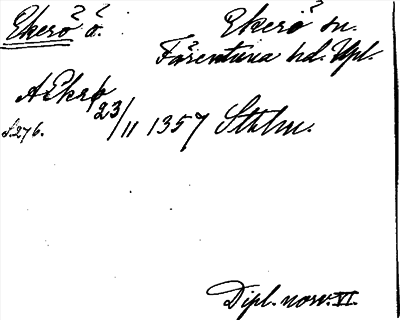 Ekerö ö.
Ekerö sn.
Färentuna hd. Upl.
A Ekrø
23/11 1357 Sthlm.
s. 276.
Dipl. norv. VI.